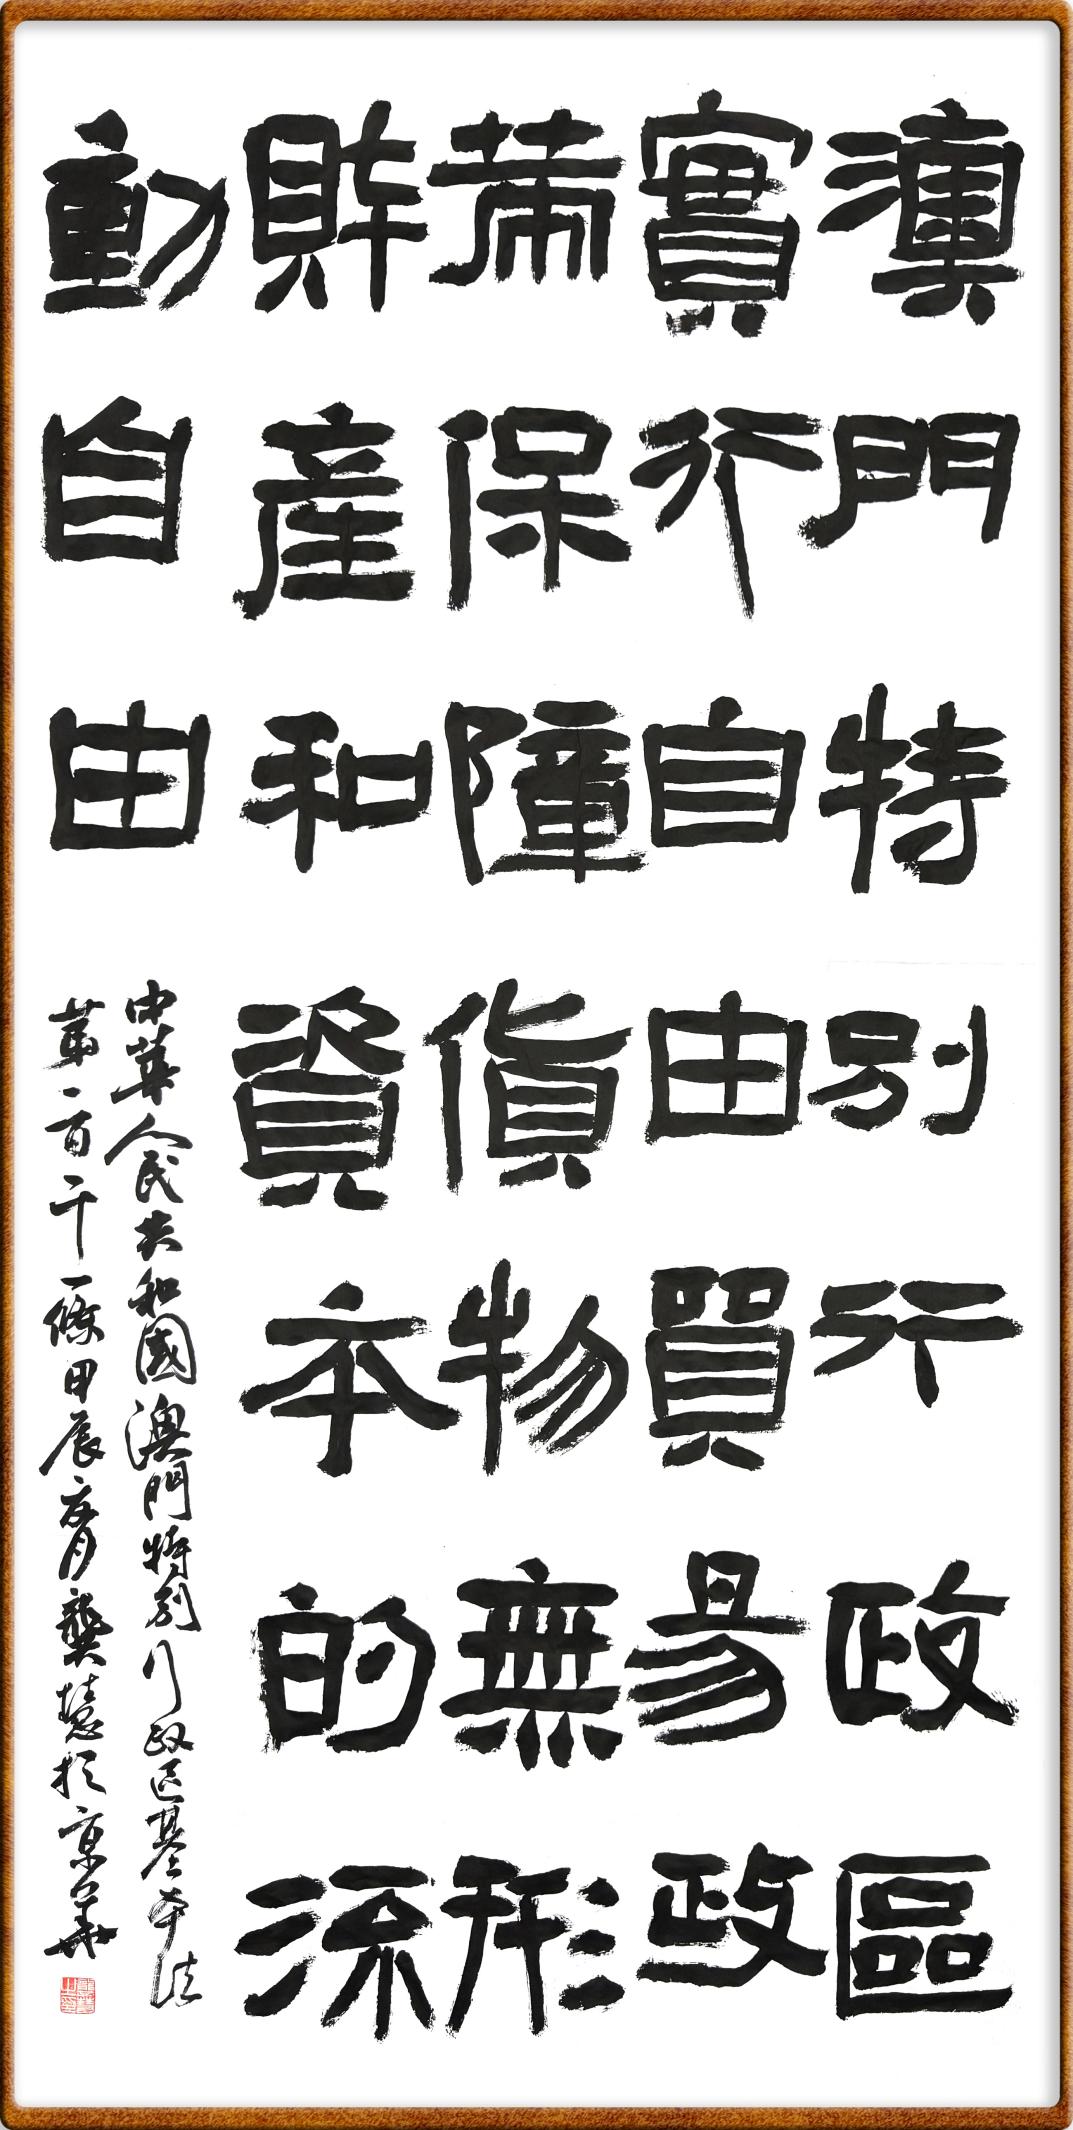 澳門特別行政區
實行自由貿易政
策保障貨物無形
財產和資本的流
動自由
中華人民共和國澳門特別行政區基本法
第一百一十一條甲辰夏月龔慧於京華